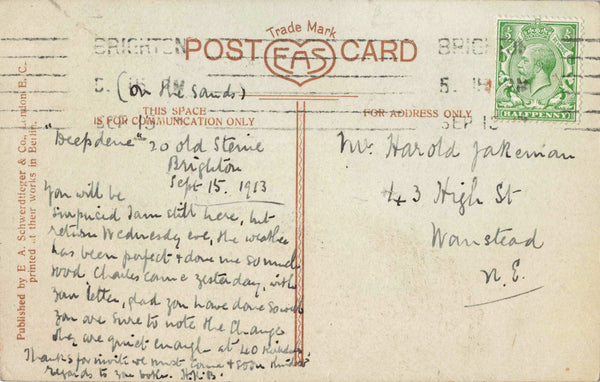 Trade Mark
POST CARD
EAS
BRIGHTON
5. 15 PM
SEP 13
BRIGHTON
5. 15 PM
SEP 13
HALFPENNY
(on the Sands)
THIS SPACE
IS FOR COMMUNICATION ONLY
FOR ADDRESS ONLY
"Deepdene" 20 old Steine
Brighton
Sept 15. 1913
You will be
surprised I am still here, but
return Wednesday eve, the weather
has been perfect & done me so much
good Charles came yesterday, with
your letter, glad you have done so well
you are sure to note the Change
they are quiet enough at 40
Thanks for invite we must come & soon kindest
regards to you both. H.B.
Mr. Harold Jakeman
43 High St
Wanstead
N.E.
Published by E. A. Schwerdtfeger & Co., London E.C.
printed at their works in Berlin.